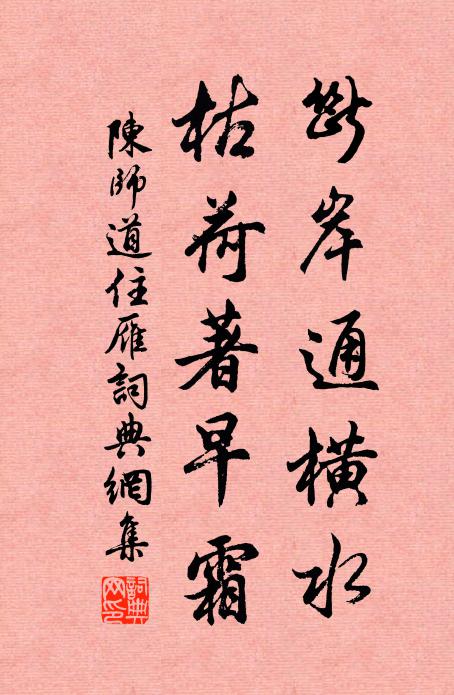 斷岸通橫水
枯荷著早霜
陳師道住雁詞典網集
詞典網印